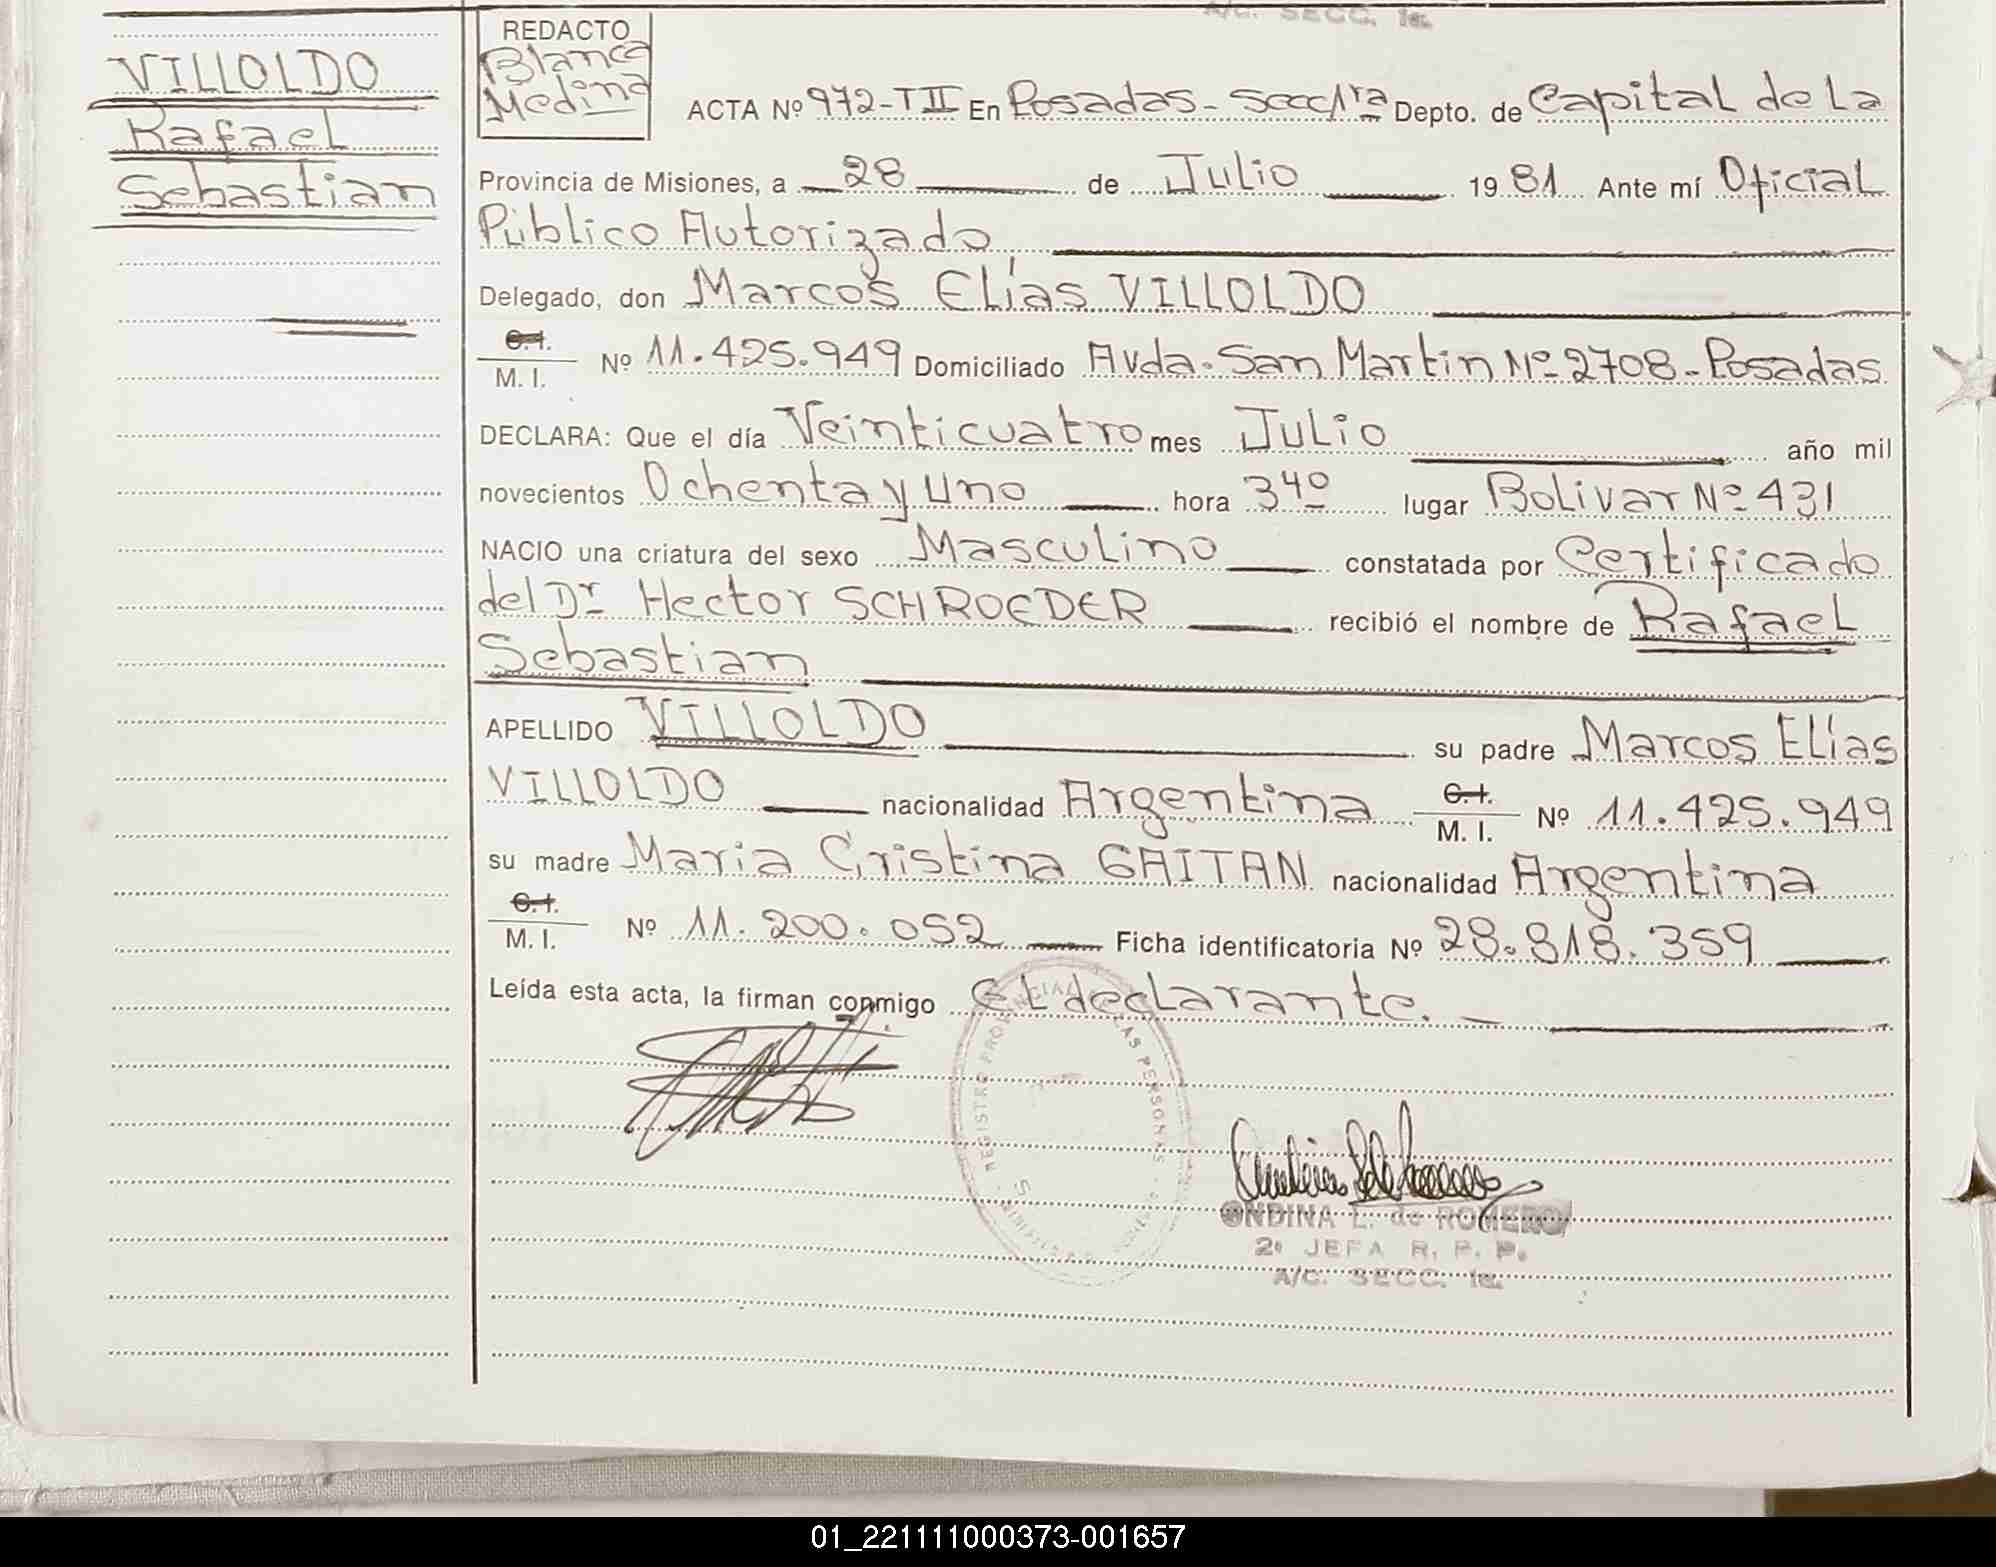 A/C. SECC. 1a.
VILLOLDO
Rafael
Sebastian
REDACTO
Blanca
Medina
ACTA Nº 972-TII En Posadas-Secc1ra Depto. de Capital de La
Provincia de Misiones, a 28 de Julio 1981 Ante mí Oficial
Público Autorizado
Delegado, don Marcos Elías VILLOLDO
C.I.
M. I. Nº 11.425.949 Domiciliado Avda. San Martin Nº 2708-Posadas.
DECLARA: Que el día Veinticuatro mes Julio año mil
novecientos Ochenta y Uno hora 3⁴⁰ lugar Bolivar Nº 431
NACIO una criatura del sexo Masculino constatada por Certificado
del Dr Hector SCHROEDER recibió el nombre de Rafael
Sebastian
APELLIDO VILLOLDO su padre Marcos Elías
VILLOLDO nacionalidad Argentina C.I.
M. I. Nº 11.425.949
su madre Maria Cristina GAITAN nacionalidad Argentina
C.I.
M. I. Nº 11.200.052 Ficha identificatoria Nº 28.818.359
Leída esta acta, la firman conmigo el declarante.
REGISTRO PROVINCIAL DE LAS PERSONAS
ONDINA L. de ROMERO
2ª JEFA R. P. P.
A/C. SECC. 1a.
01_221111000373-001657